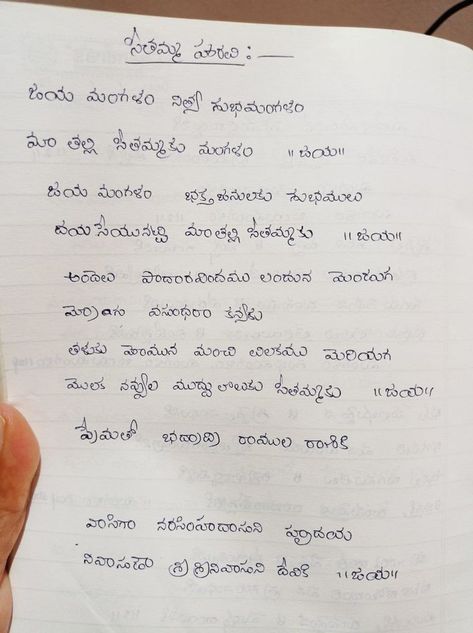 సీతమ్మ హారతి : —
జయ మంగళం నిత్య శుభమంగళం
మా తల్లి సీతమ్మకు మంగళం ॥జయ॥
జయ మంగళం భక్త జనులకు శుభములు
దయసేయునట్టి మాతల్లి సీతమ్మకు ॥జయ॥
అందెలు పాదారవిందము లందున మెండుగ
మ్రోగెగా వసుంధరా కన్యకు
తళుకు మోమున మంచి తిలకము మెరియగ
మొలక నవ్వుల ముద్దులొలుకు సీతమ్మకు ॥జయ॥
ప్రేమతో భద్రాద్రి రాముల రాణికి
వాసిగా నరసింహదాసుని హృదయ
నివాసుడౌ శ్రీ శ్రీనివాసుని దేవికి ॥జయ॥